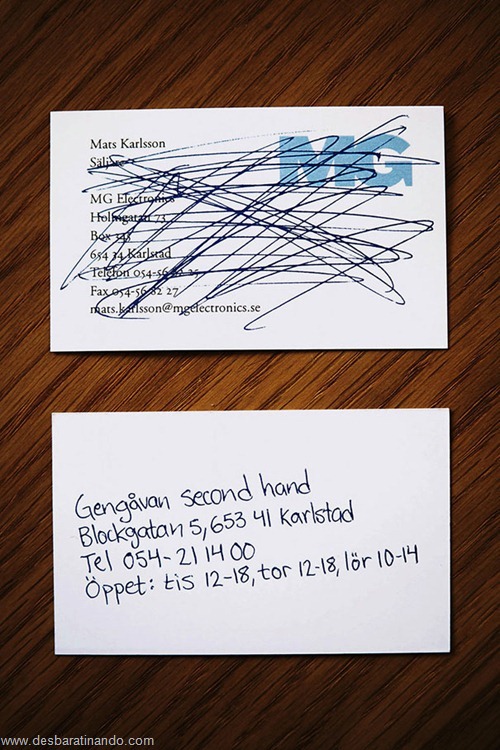 Mats Karlsson
Säljare
MG
MG Electronics
Holmgatan 73
Box 345
654 34 Karlstad
Telefon 054-56
Fax 054-56 82 27
mats.karlsson@mgelectronics.se
Gengåvan second hand
Blockgatan 5, 653 41 Karlstad
Tel 054-21 14 00
Öppet: tis 12-18, tor 12-18, lör 10-14
www.desbaratinando.com